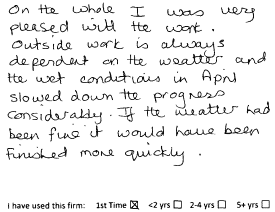 On the whole I was very
pleased with the work.
Outside work is always
dependent on the weather and
the wet conditions in April
slowed down the progress
considerably. If the weather had
been fine it would have been
finished more quickly.
I have used this firm: 1st Time ☒ <2 yrs ☐ 2-4 yrs ☐ 5+ yrs ☐